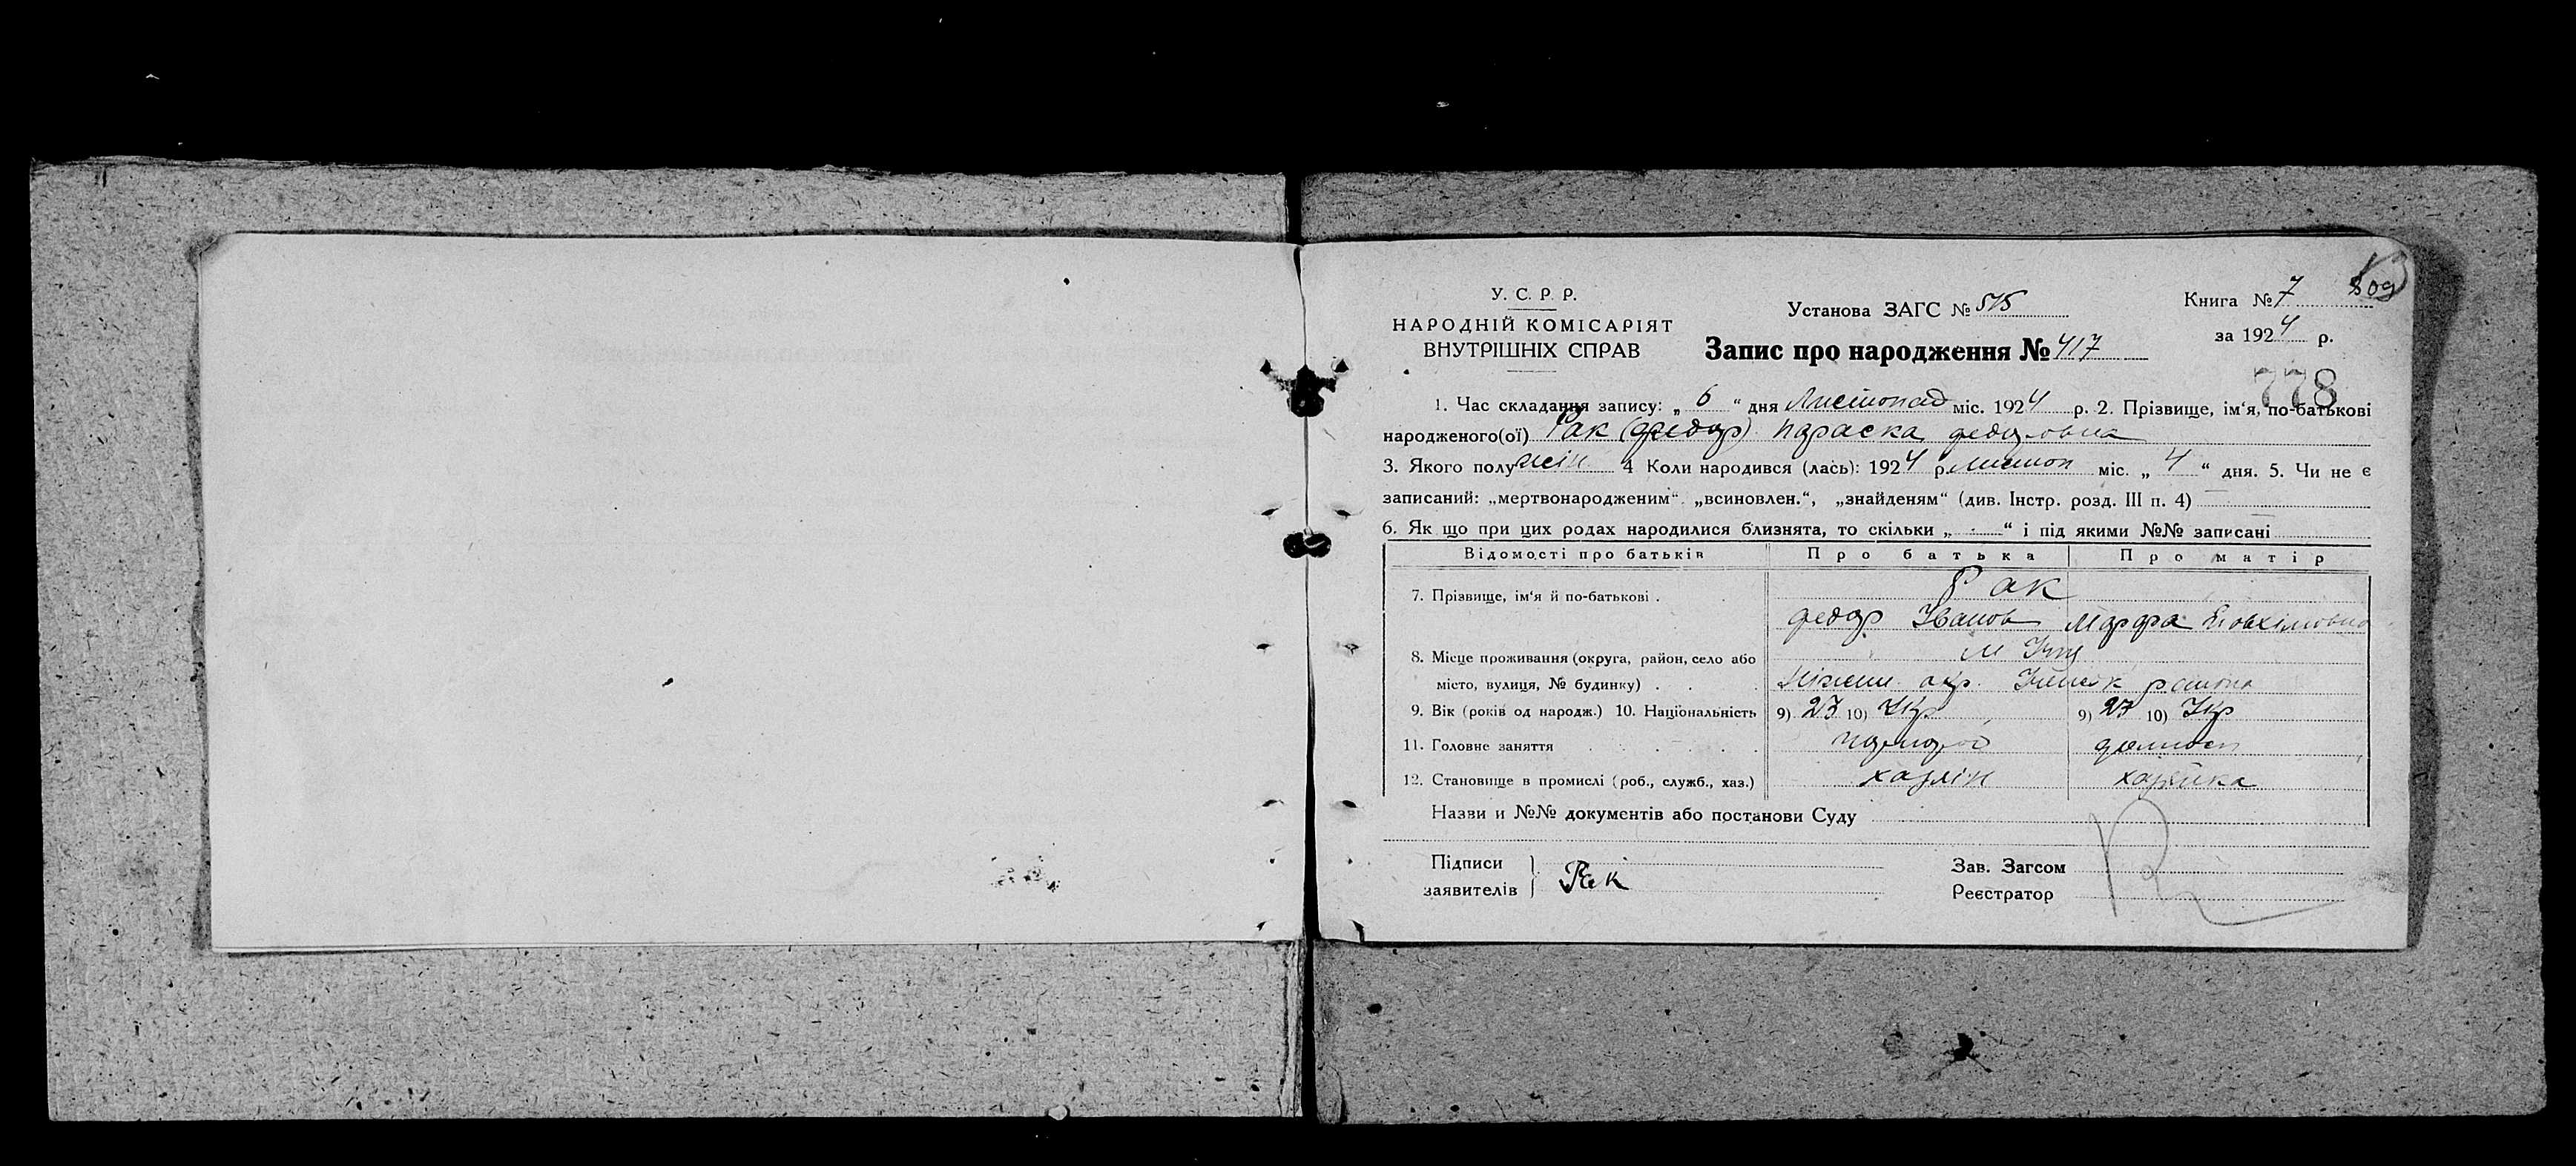 У. С. Р. Р.
НАРОДНІЙ КОМІСАРІЯТ
ВНУТРІШНІХ СПРАВ
Установа ЗАГС № 515
Запис про народження № 417
Книга № 7
за 1924 р.
778
1. Час складання запису: „ 6 “ дня Листопад міс. 1924 р. 2. Прізвище, ім‘я, по-батькові
народженого(ої) Рак (Федор) Параска Федоровна
3. Якого полу жін 4 Коли народився (лась): 1924 р. листоп міс. „ 4 “ дня. 5. Чи не є
записаний: „мертвонародженим“ „всиновлен.“, „знайденям“ (див. Інстр. розд. III п. 4)
6. Як що при цих родах народилися близнята, то скільки „ “ і під якими №№ записані
Відомості про батьків Про батька Про матір
7. Прізвище, ім‘я й по-батькові . Рак
Федор Іванов Марфа Евхимовна
8. Місце проживання (округа, район, село або м
місто, вулиця, № будинку) . Ніжен. окр. района
9. Вік (років од народж.) 10. Національність 9) 27 10) Укр 9) 27 10) Укр
11. Головне заняття
12. Становище в промислі (роб., служб., хаз.) хазяін хазяйка
Назви и №№ документів або постанови Суду
Підписи
заявителів Рак
Зав. Загсом
Реєстратор